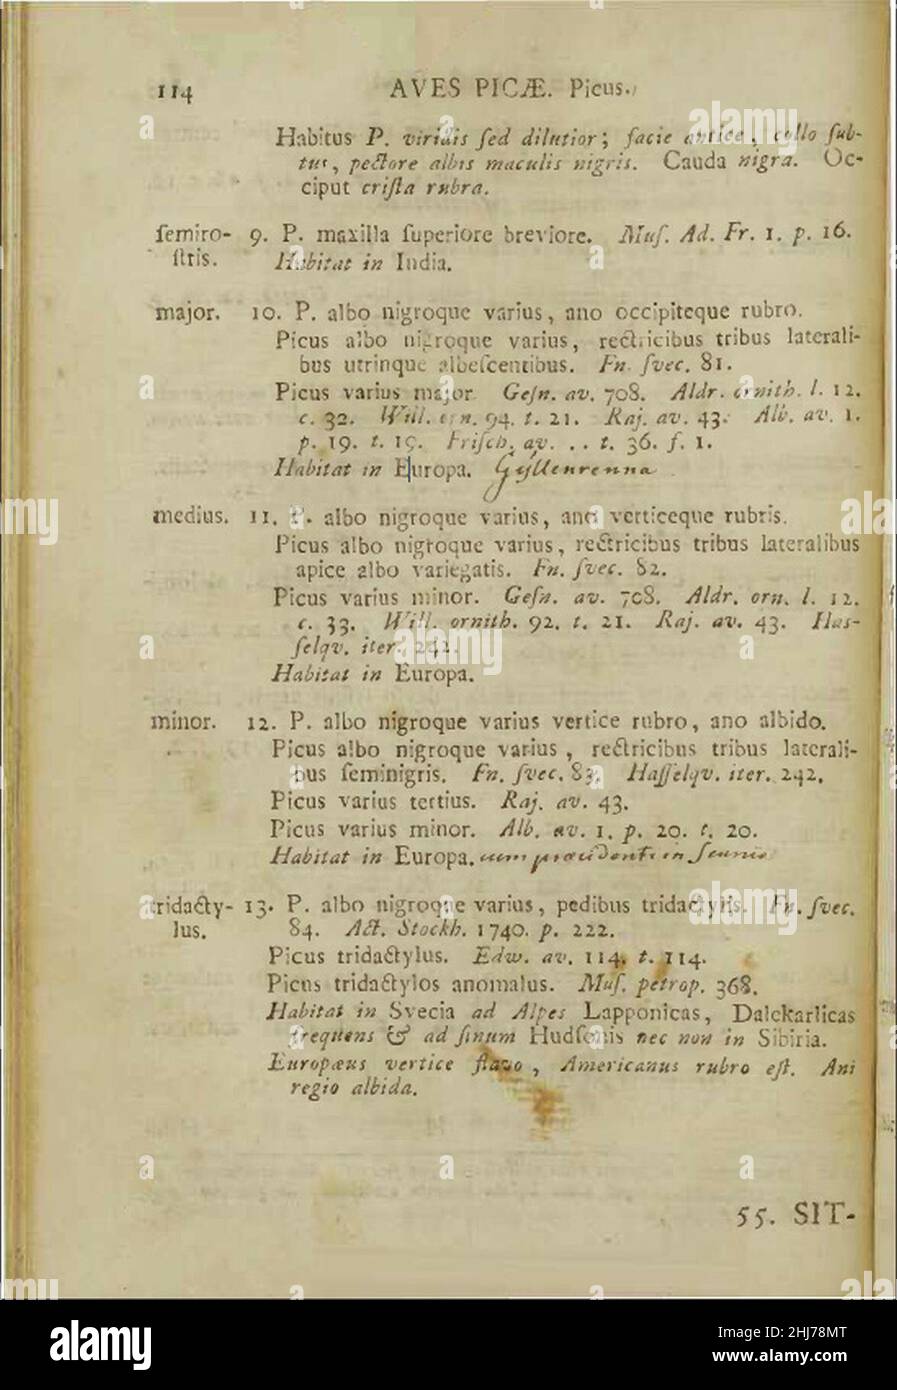 114 AVES PICÆ. Picus.
Habitus P. viridis ſed dilutior; facie antice, collo ſub-
tus, pectore albis maculis nigris. Cauda nigra. Oc-
ciput criſta rubra.
ſemiro- 9. P. maxilla ſuperiore breviore. Muſ. Ad. Fr. 1. p. 16.
ſtris. Habitat in India.
major. 10. P. albo nigroque varius, ano occipiteque rubro.
Picus albo nigroque varius, rectricibus tribus laterali-
bus utrinque albeſcentibus. Fn. ſvec. 81.
Picus varius major Geſn. av. 708. Aldr. ornith. l. 12.
c. 32. Will. orn. 94. t. 21. Raj. av. 43. Alb. av. 1.
p. 19. t. 19. Friſch. av. . . t. 36. f. 1.
Habitat in Europa. Gyllenrenna
medius. 11. P. albo nigroque varius, ano verticeque rubris.
Picus albo nigroque varius, rectricibus tribus lateralibus
apice albo variegatis. Fn. ſvec. 82.
Picus varius minor. Geſn. av. 708. Aldr. orn. l. 12.
c. 33. Will. ornith. 92. t. 21. Raj. av. 43. Haſ-
ſelqv. iter. 242.
Habitat in Europa.
minor. 12. P. albo nigroque varius vertice rubro, ano albido.
Picus albo nigroque varius, rectricibus tribus laterali-
bus ſeminigris. Fn. ſvec. 83. Haſſelqv. iter. 242.
Picus varius tertius. Raj. av. 43.
Picus varius minor. Alb. av. 1. p. 20. t. 20.
Habitat in Europa. cum præcidenti in
tridacty- 13. P. albo nigroque varius, pedibus tridactylis. Fn. ſvec.
lus. 84. Act. Stockh. 1740. p. 222.
Picus tridactylus. Edw. av. 114. t. 114.
Picus tridactylos anomalus. Muſ. petrop. 368.
Habitat in Svecia ad Alpes Lapponicas, Dalekarlicas
frequens & ad ſinum Hudſonis nec non in Sibiria.
Europæus vertice flavo, Americanus rubro eſt. Ani
regio albida.
55. SIT-
alamy
Image ID: 2HJ78MT
www.alamy.com